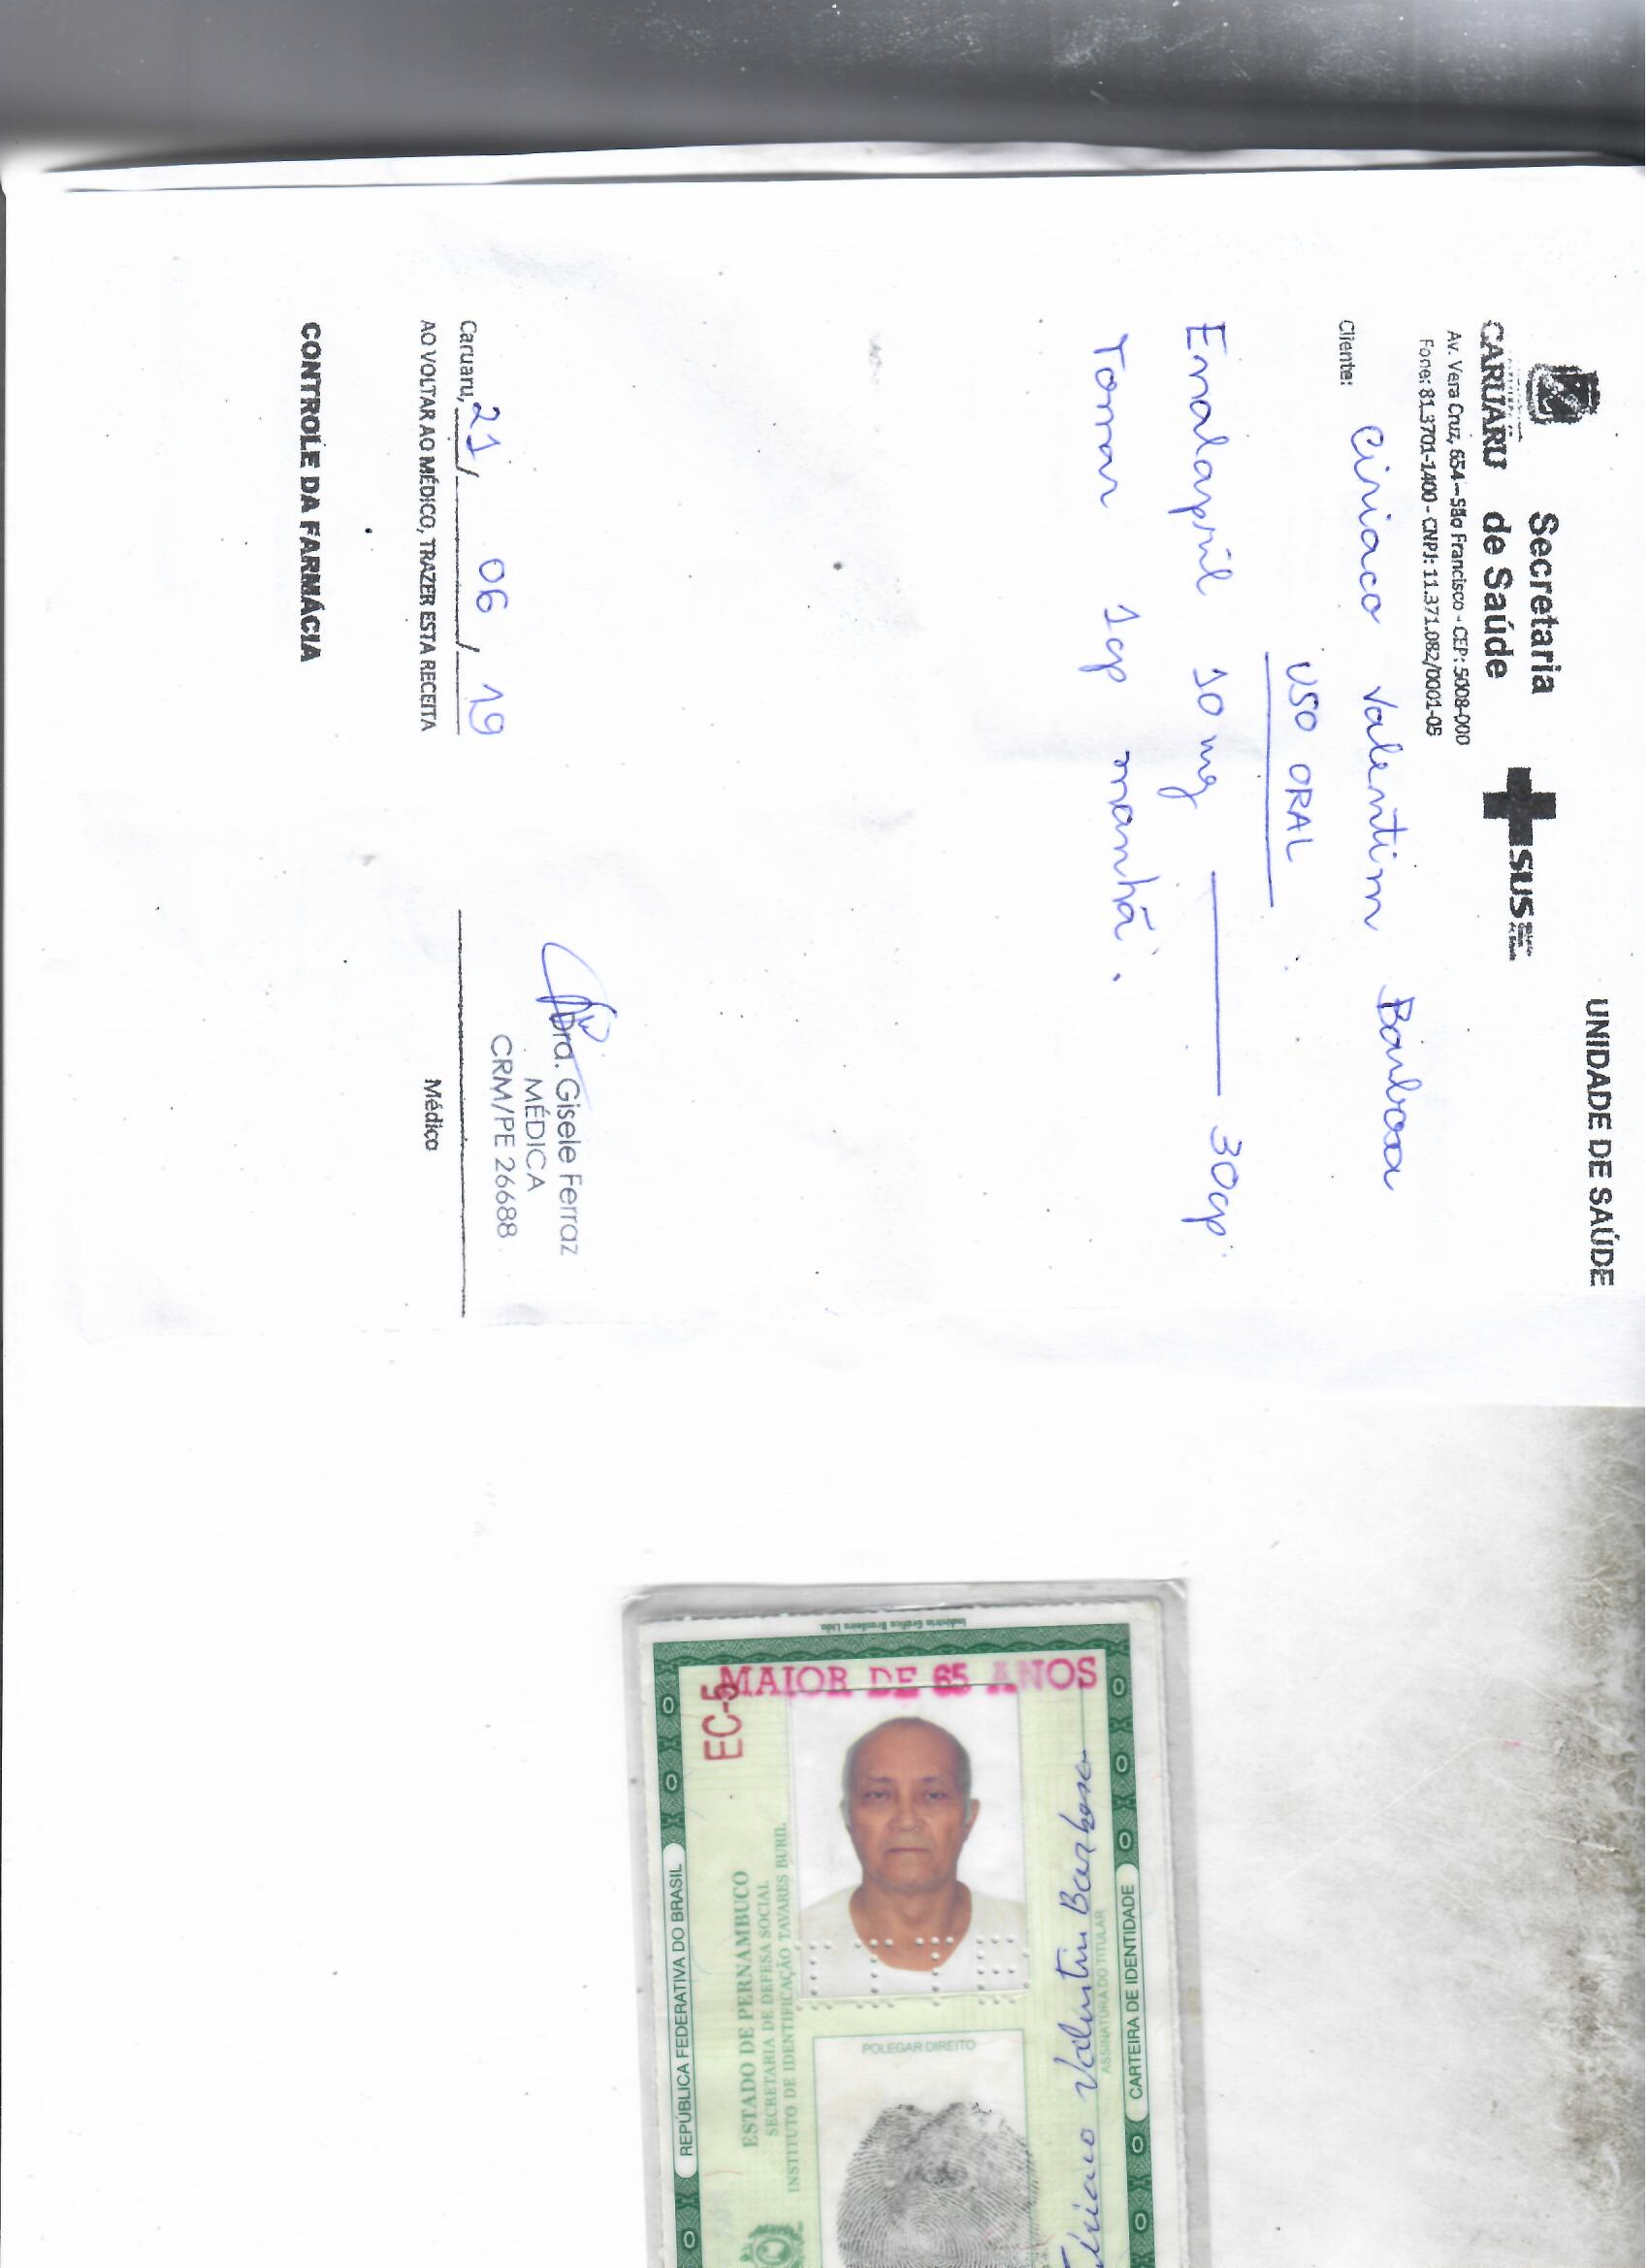 UNIDADE DE SAÚDE
Secretaria
CARUARU de Saúde
SUS
Av. Vera Cruz, 654 – São Francisco - CEP: 5008-000
Fone: 81.3701-1400 - CNPJ: 11.371.082/0001-05
Cliente: Ciriaco Valentim Barbosa
USO ORAL
Enalapril 10 mg — 30cp
Tomar 1cp manhã.
Dra. Gisele Ferraz
MÉDICA
CRM/PE 26688
Caruaru, 21 / 06 / 19
Médico
AO VOLTAR AO MÉDICO, TRAZER ESTA RECEITA
CONTROLE DA FARMÁCIA
Indústria Gráfica Brasileira Ltda.
MAIOR DE 65 ANOS
EC-5
REPÚBLICA FEDERATIVA DO BRASIL
ESTADO DE PERNAMBUCO
SECRETARIA DE DEFESA SOCIAL
INSTITUTO DE IDENTIFICAÇÃO TAVARES BURIL
POLEGAR DIREITO
Valentim Barbosa
ASSINATURA DO TITULAR
CARTEIRA DE IDENTIDADE